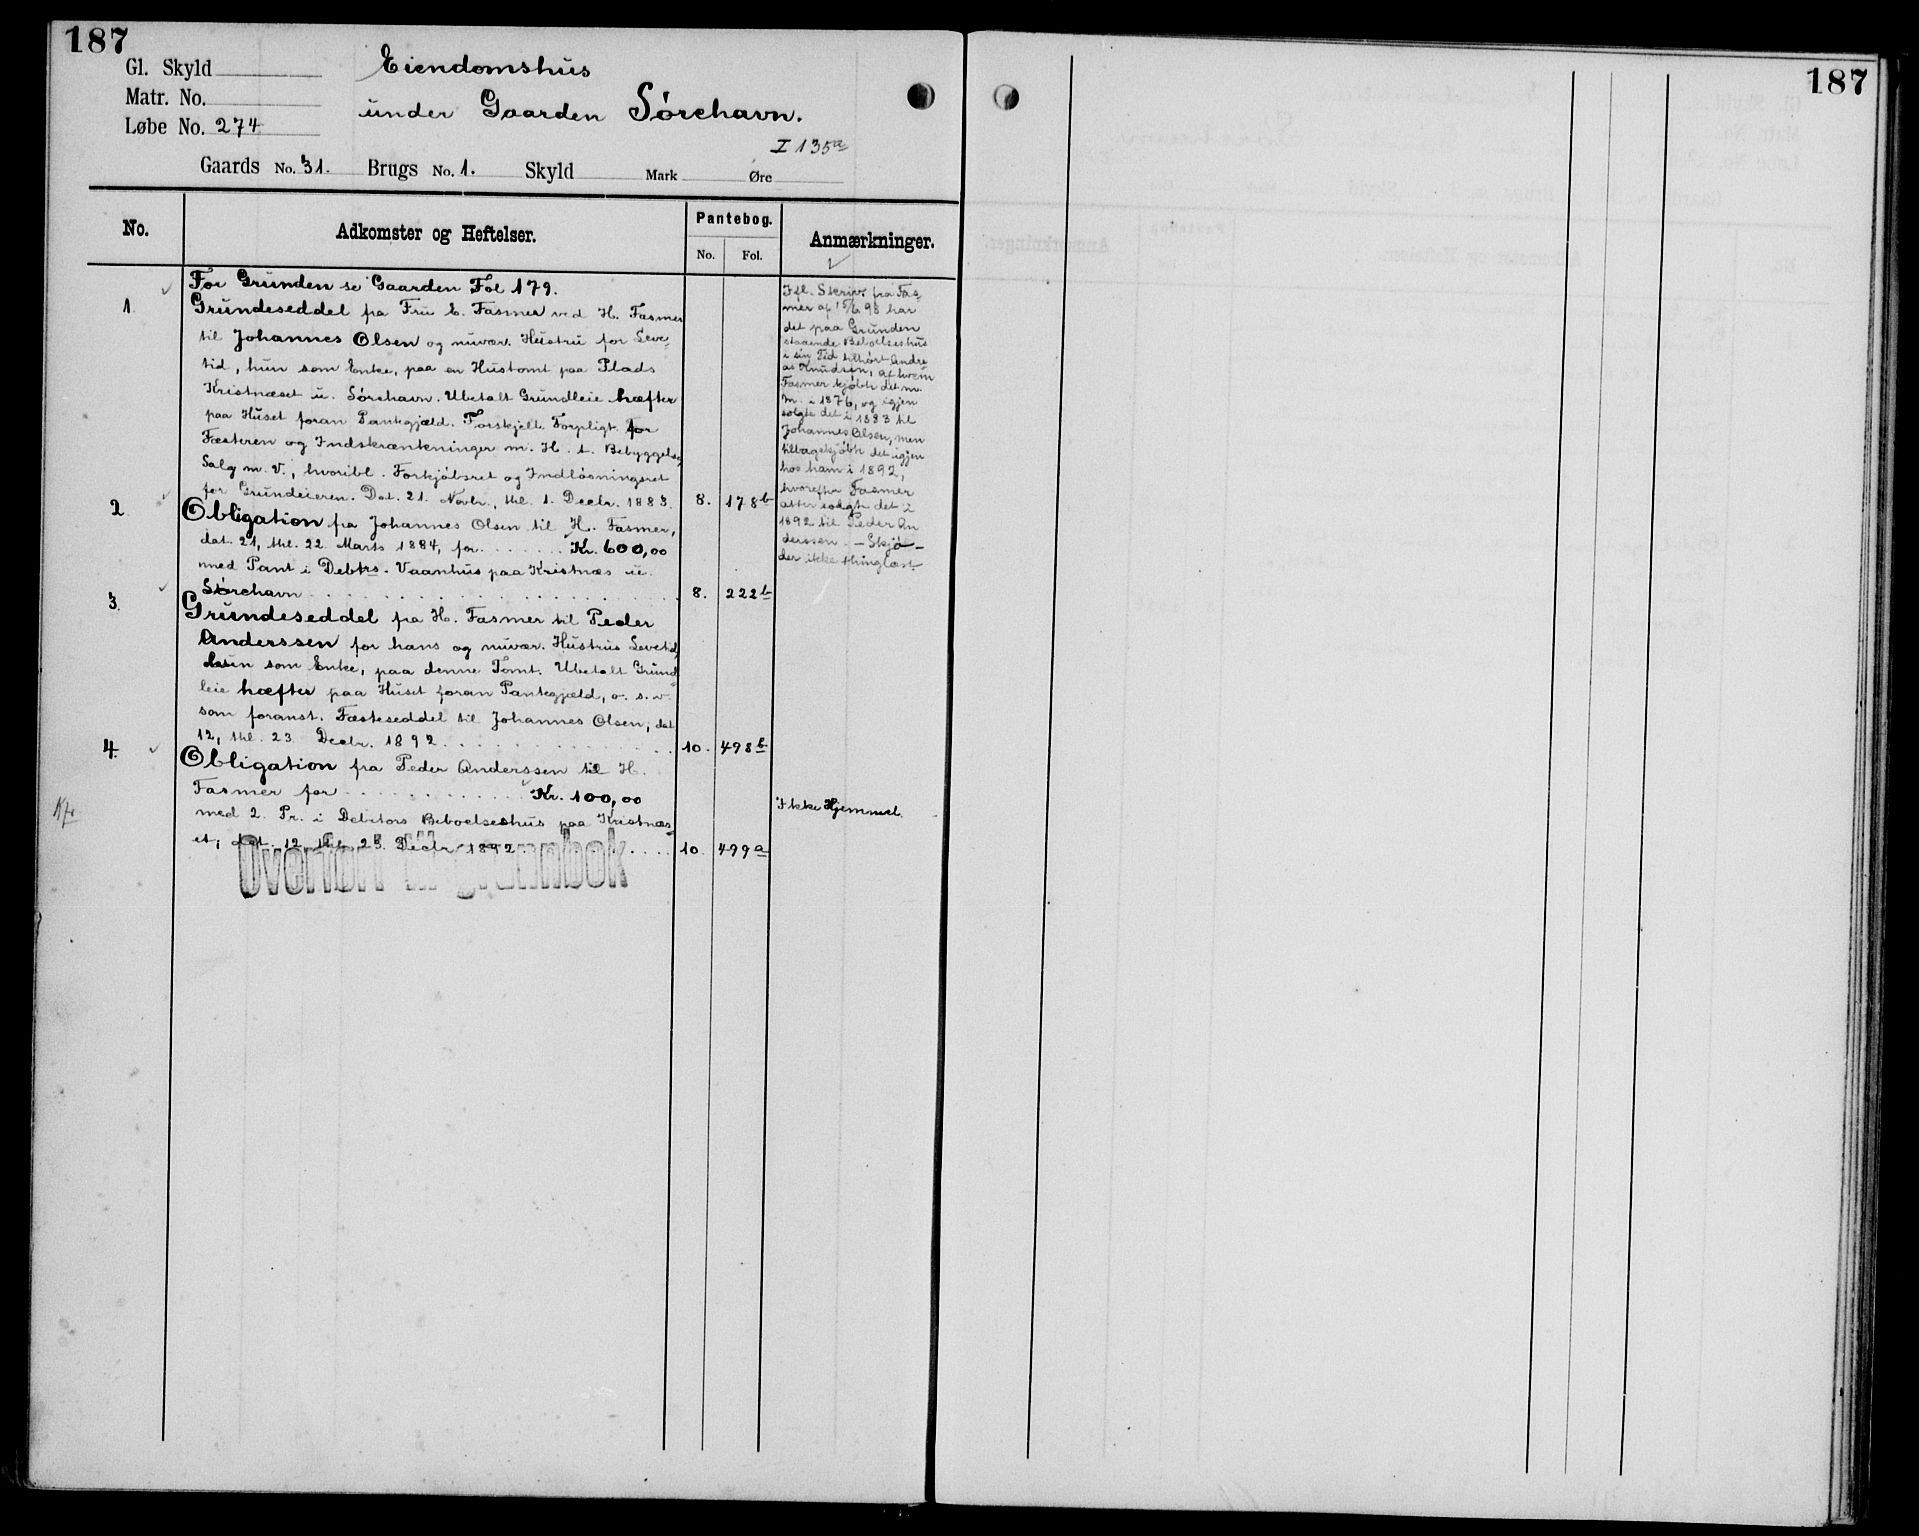 187
Gl. Skyld
Matr. No.
Løbe No. 274
Eiendomshus
under Gaarden Sörehavn.
I 135a
Gaards No. 31. Brugs No. 1. Skyld Mark Øre
No.
Adkomster og Heftelser.
Pantebog.
No. Fol.
Anmærkninger.
For Grunden se Gaarden Fol 179.
1. Grundeseddel fra Fru E. Fasmer ved H. Fasmer
til Johannes Olsen og nuvær. Hustru for Leve-
tid, hun som Enke, paa en Hustomt paa Plads
Kristnæset u. Sörehavn. Ubetalt Grundleie hæfter
paa Huset foran Pantegjæld. Forskjell. Forpligt. for
Fæsteren og Indskrænkninger m. H. t. Bebyggelse,
Salg m. V., hvoribl. Forkjöbsret og Indlösningsret
for Grundeieren. Dat. 21. Novbr., thl. 1. Decbr. 1883. 8. 178b
2 Obligation fra Johannes Olsen til H. Fasmer,
dat. 21, thl. 22 Marts 1884, for . . . . . . . Kr. 600,00
med Pant i Debtrs. Vaanhus paa Kristnæs u.
Sörehavn . . . . . . . . 8. 222b
3. Grundeseddel fra H. Fasmer til Peder
Anderssen for hans og nuvær. Hustrus Levetid,
som Enke, paa denne Tomt. Ubetalt Grund-
leie hæfter paa Huset foran Pantegjæld, o. s. v.
som foranst. Fæsteseddel til Johannes Olsen; dat
12, thl. 23 Decbr. 1892 . . . . . . . . 10. 498b
4. Obligation fra Peder Anderssen til H.
Fasmer for . . . . . . . . Kr. 100,00
med 2. Pr. i Debitors Beboelseshus paa Kristnæs-
et; dat. 12 thl. 23. Decbr 1892 . . . . 10. 499a
Overført til grunnbok
Ifl. Skriv. fra Fas-
mer af 15/6 98 har
det paa Grunden
staaende Beboelseshus
i sin Tid tilhört Andre
as Knudsen, af hvem
Fasmer kjöbte det m.
m. i 1876, og igjen
solgte det i 1883 til
Johannes Olsen, men
tilbagekjöbte det igjen
hos ham i 1892,
hvorefter Fasmer
atter solgte det i
1892 til Peder An
derssen. - Skjö-
der ikke thinglæst.
Ikke Hjemmel.
187